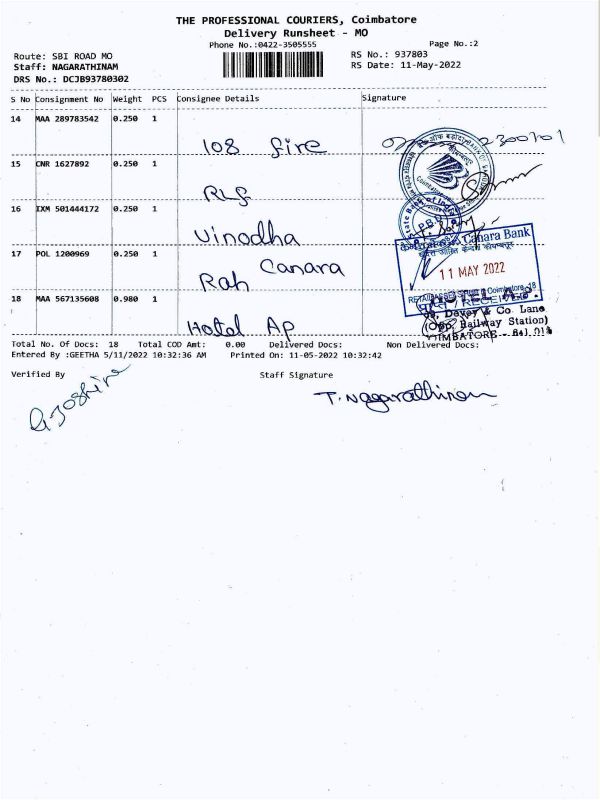 THE PROFESSIONAL COURIERS, Coimbatore
Delivery Runsheet - MO
Phone No.:0422-3505555
Page No.:2
Route: SBI ROAD MO
RS No.: 937803
Staff: NAGARATHINAM
RS Date: 11-May-2022
DRS No.: DCJB93780302
S No Consignment No Weight PCS Consignee Details Signature
14 MAA 289783542 0.250 1
108 fire
15 CNR 1627892 0.250 1
RLF
16 IXM 501444172 0.250 1
Vinodha
17 POL 1200969 0.250 1
Canara
Rah
Canara Bank
11 MAY 2022
18 MAA 567135608 0.980 1
Hotel AP
HOTEL A.P.
Davey & Co. Lane
(Opp. Railway Station)
COIMBATORE - 641 018
Total No. Of Docs: 18 Total COD Amt: 0.00 Delivered Docs: Non Delivered Docs:
Entered By :GEETHA 5/11/2022 10:32:36 AM Printed On: 11-05-2022 10:32:42
Verified By Staff Signature
T. Nagarathinam